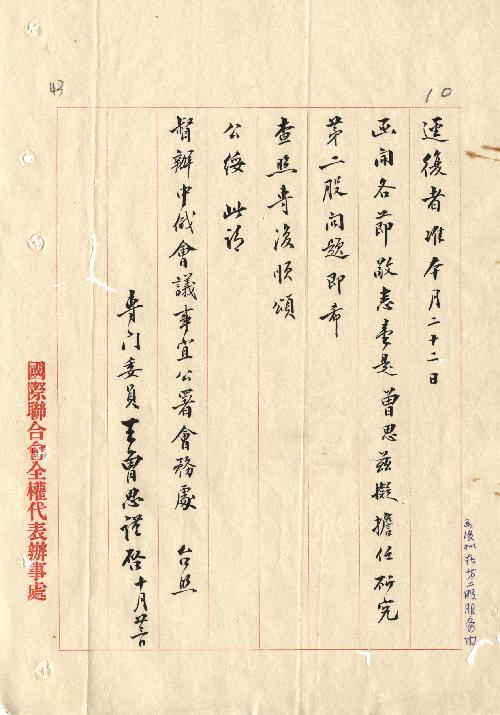 10
逕復者准本月二十二日
函開各節敬悉壹是曾思茲擬擔任研究
第二股問題即希
查照專復順頌
公綏 此請
督辦中俄會議事宜公署會務處 台照
專門委員王曾思謹啓十月廿三日
國際聯合會全權代表辦事處
43